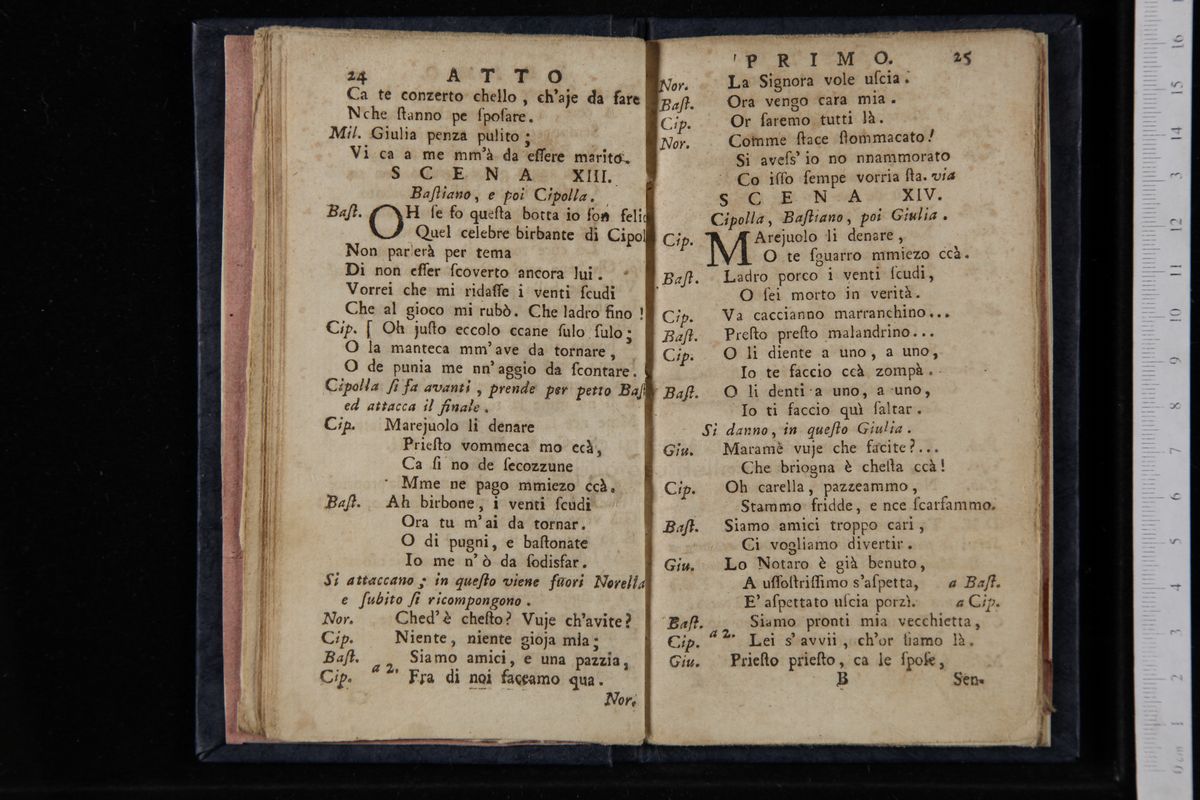 24 ATTO
Ca te conzerto chello, ch'aje da fare
Nche ſtanno pe ſpoſare.
Mil. Giulia penza pulito;
Vi ca a me mm'à da eſſere marito.
SCENA XIII.
Baſtiano, e poi Cipolla.
Baſt. OH ſe fo queſta botta io ſon
Quel celebre birbante di
Non par'erà per tema
Di non eſſer ſcoverto ancora lui.
Vorrei che mi ridaſſe i venti ſcudi
Che al gioco mi rubò. Che ladro fino!
Cip. [ Oh juſto eccolo ccane ſulo ſulo;
O la manteca mm'ave da tornare,
O de punia me nn'aggio da ſcontare.
Cipolla ſi fa avanti, prende per petto
ed attacca il finale.
Cip. Marejuolo li denare
Prieſto vommeca mo ccà,
Ca ſi no de ſecozzune
Mme ne pago mmiezo ccà.
Baſt. Ah birbone, i venti ſcudi
Ora tu m'ai da tornar.
O di pugni, e baſtonate
Io me n'ò da ſodisfar.
Si attaccano; in queſto viene fuori Norella
e ſubito ſi ricompongono.
Nor. Ched'è cheſto? Vuje ch'avite?
Cip. Niente, niente gioja mia;
Baſt. Siamo amici, e una pazzia,
a 2.
Cip. Fra di noi faceamo qua.
Nor.
PRIMO. 25
Nor. La Signora vole uſcia.
Baſt. Ora vengo cara mia.
Cip. Or ſaremo tutti là.
Nor. Comme ſtace ſtommacato!
Si aveſs' io no nnammorato
Co iſſo ſempe vorria ſta. via
SCENA XIV.
Cipolla, Baſtiano, poi Giulia.
Cip. MArejuolo li denare,
O te ſguarro mmiezo ccà.
Baſt. Ladro porco i venti ſcudi,
O ſei morto in verità.
Cip. Va caccianno marranchino...
Baſt. Preſto preſto malandrino...
Cip. O li diente a uno, a uno,
Io te faccio ccà zompà.
Baſt. O li denti a uno, a uno,
Io ti faccio quì ſaltar.
Si danno, in queſto Giulia.
Giu. Maramè vuje che facite?...
Che briogna è cheſta ccà!
Cip. Oh carella, pazzeammo,
Stammo fridde, e nce ſcarfammo.
Baſt. Siamo amici troppo cari,
Ci vogliamo divertir.
Giu. Lo Notaro è già benuto,
A uſſoſtriſſimo s'aſpetta, a Baſt.
E' aſpettato uſcia porzì. a Cip.
Baſt. Siamo pronti mia vecchietta,
a 2.
Cip. Lei s'avvii, ch'or ſiamo là.
Giu. Prieſto prieſto, ca le ſpoſe,
B Sen-